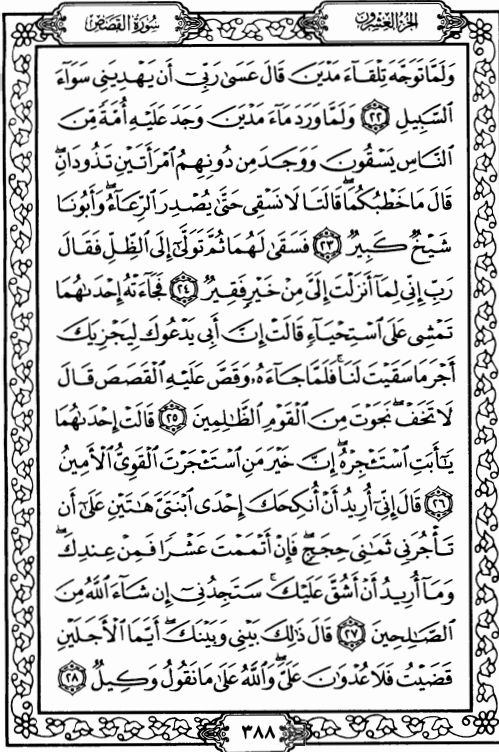 الجزء العشرون
سورة القصص
وَلَمَّا تَوَجَّهَ تِلْقَآءَ مَدْيَنَ قَالَ عَسَىٰ رَبِّىٓ أَن يَهْدِيَنِى سَوَآءَ
ٱلسَّبِيلِ ﴿٢٢﴾ وَلَمَّا وَرَدَ مَآءَ مَدْيَنَ وَجَدَ عَلَيْهِ أُمَّةً مِّنَ
ٱلنَّاسِ يَسْقُونَ وَوَجَدَ مِن دُونِهِمُ ٱمْرَأَتَيْنِ تَذُودَانِ ۖ
قَالَ مَا خَطْبُكُمَا ۖ قَالَتَا لَا نَسْقِى حَتَّىٰ يُصْدِرَ ٱلرِّعَآءُ ۖ وَأَبُونَا
شَيْخٌ كَبِيرٌ ﴿٢٣﴾ فَسَقَىٰ لَهُمَا ثُمَّ تَوَلَّىٰٓ إِلَى ٱلظِّلِّ فَقَالَ
رَبِّ إِنِّى لِمَآ أَنزَلْتَ إِلَىَّ مِنْ خَيْرٍ فَقِيرٌ ﴿٢٤﴾ فَجَآءَتْهُ إِحْدَىٰهُمَا
تَمْشِى عَلَى ٱسْتِحْيَآءٍ قَالَتْ إِنَّ أَبِى يَدْعُوكَ لِيَجْزِيَكَ
أَجْرَ مَا سَقَيْتَ لَنَا ۚ فَلَمَّا جَآءَهُۥ وَقَصَّ عَلَيْهِ ٱلْقَصَصَ قَالَ
لَا تَخَفْ ۖ نَجَوْتَ مِنَ ٱلْقَوْمِ ٱلظَّـٰلِمِينَ ﴿٢٥﴾ قَالَتْ إِحْدَىٰهُمَا
يَـٰٓأَبَتِ ٱسْتَـْٔجِرْهُ ۖ إِنَّ خَيْرَ مَنِ ٱسْتَـْٔجَرْتَ ٱلْقَوِىُّ ٱلْأَمِينُ
﴿٢٦﴾ قَالَ إِنِّىٓ أُرِيدُ أَنْ أُنكِحَكَ إِحْدَى ٱبْنَتَىَّ هَـٰتَيْنِ عَلَىٰٓ أَن
تَأْجُرَنِى ثَمَـٰنِىَ حِجَجٍ ۖ فَإِنْ أَتْمَمْتَ عَشْرًا فَمِنْ عِندِكَ ۖ
وَمَآ أُرِيدُ أَنْ أَشُقَّ عَلَيْكَ ۚ سَتَجِدُنِىٓ إِن شَآءَ ٱللَّهُ مِنَ
ٱلصَّـٰلِحِينَ ﴿٢٧﴾ قَالَ ذَٰلِكَ بَيْنِى وَبَيْنَكَ ۖ أَيَّمَا ٱلْأَجَلَيْنِ
قَضَيْتُ فَلَا عُدْوَٰنَ عَلَىَّ ۖ وَٱللَّهُ عَلَىٰ مَا نَقُولُ وَكِيلٌ ﴿٢٨﴾
٣٨٨